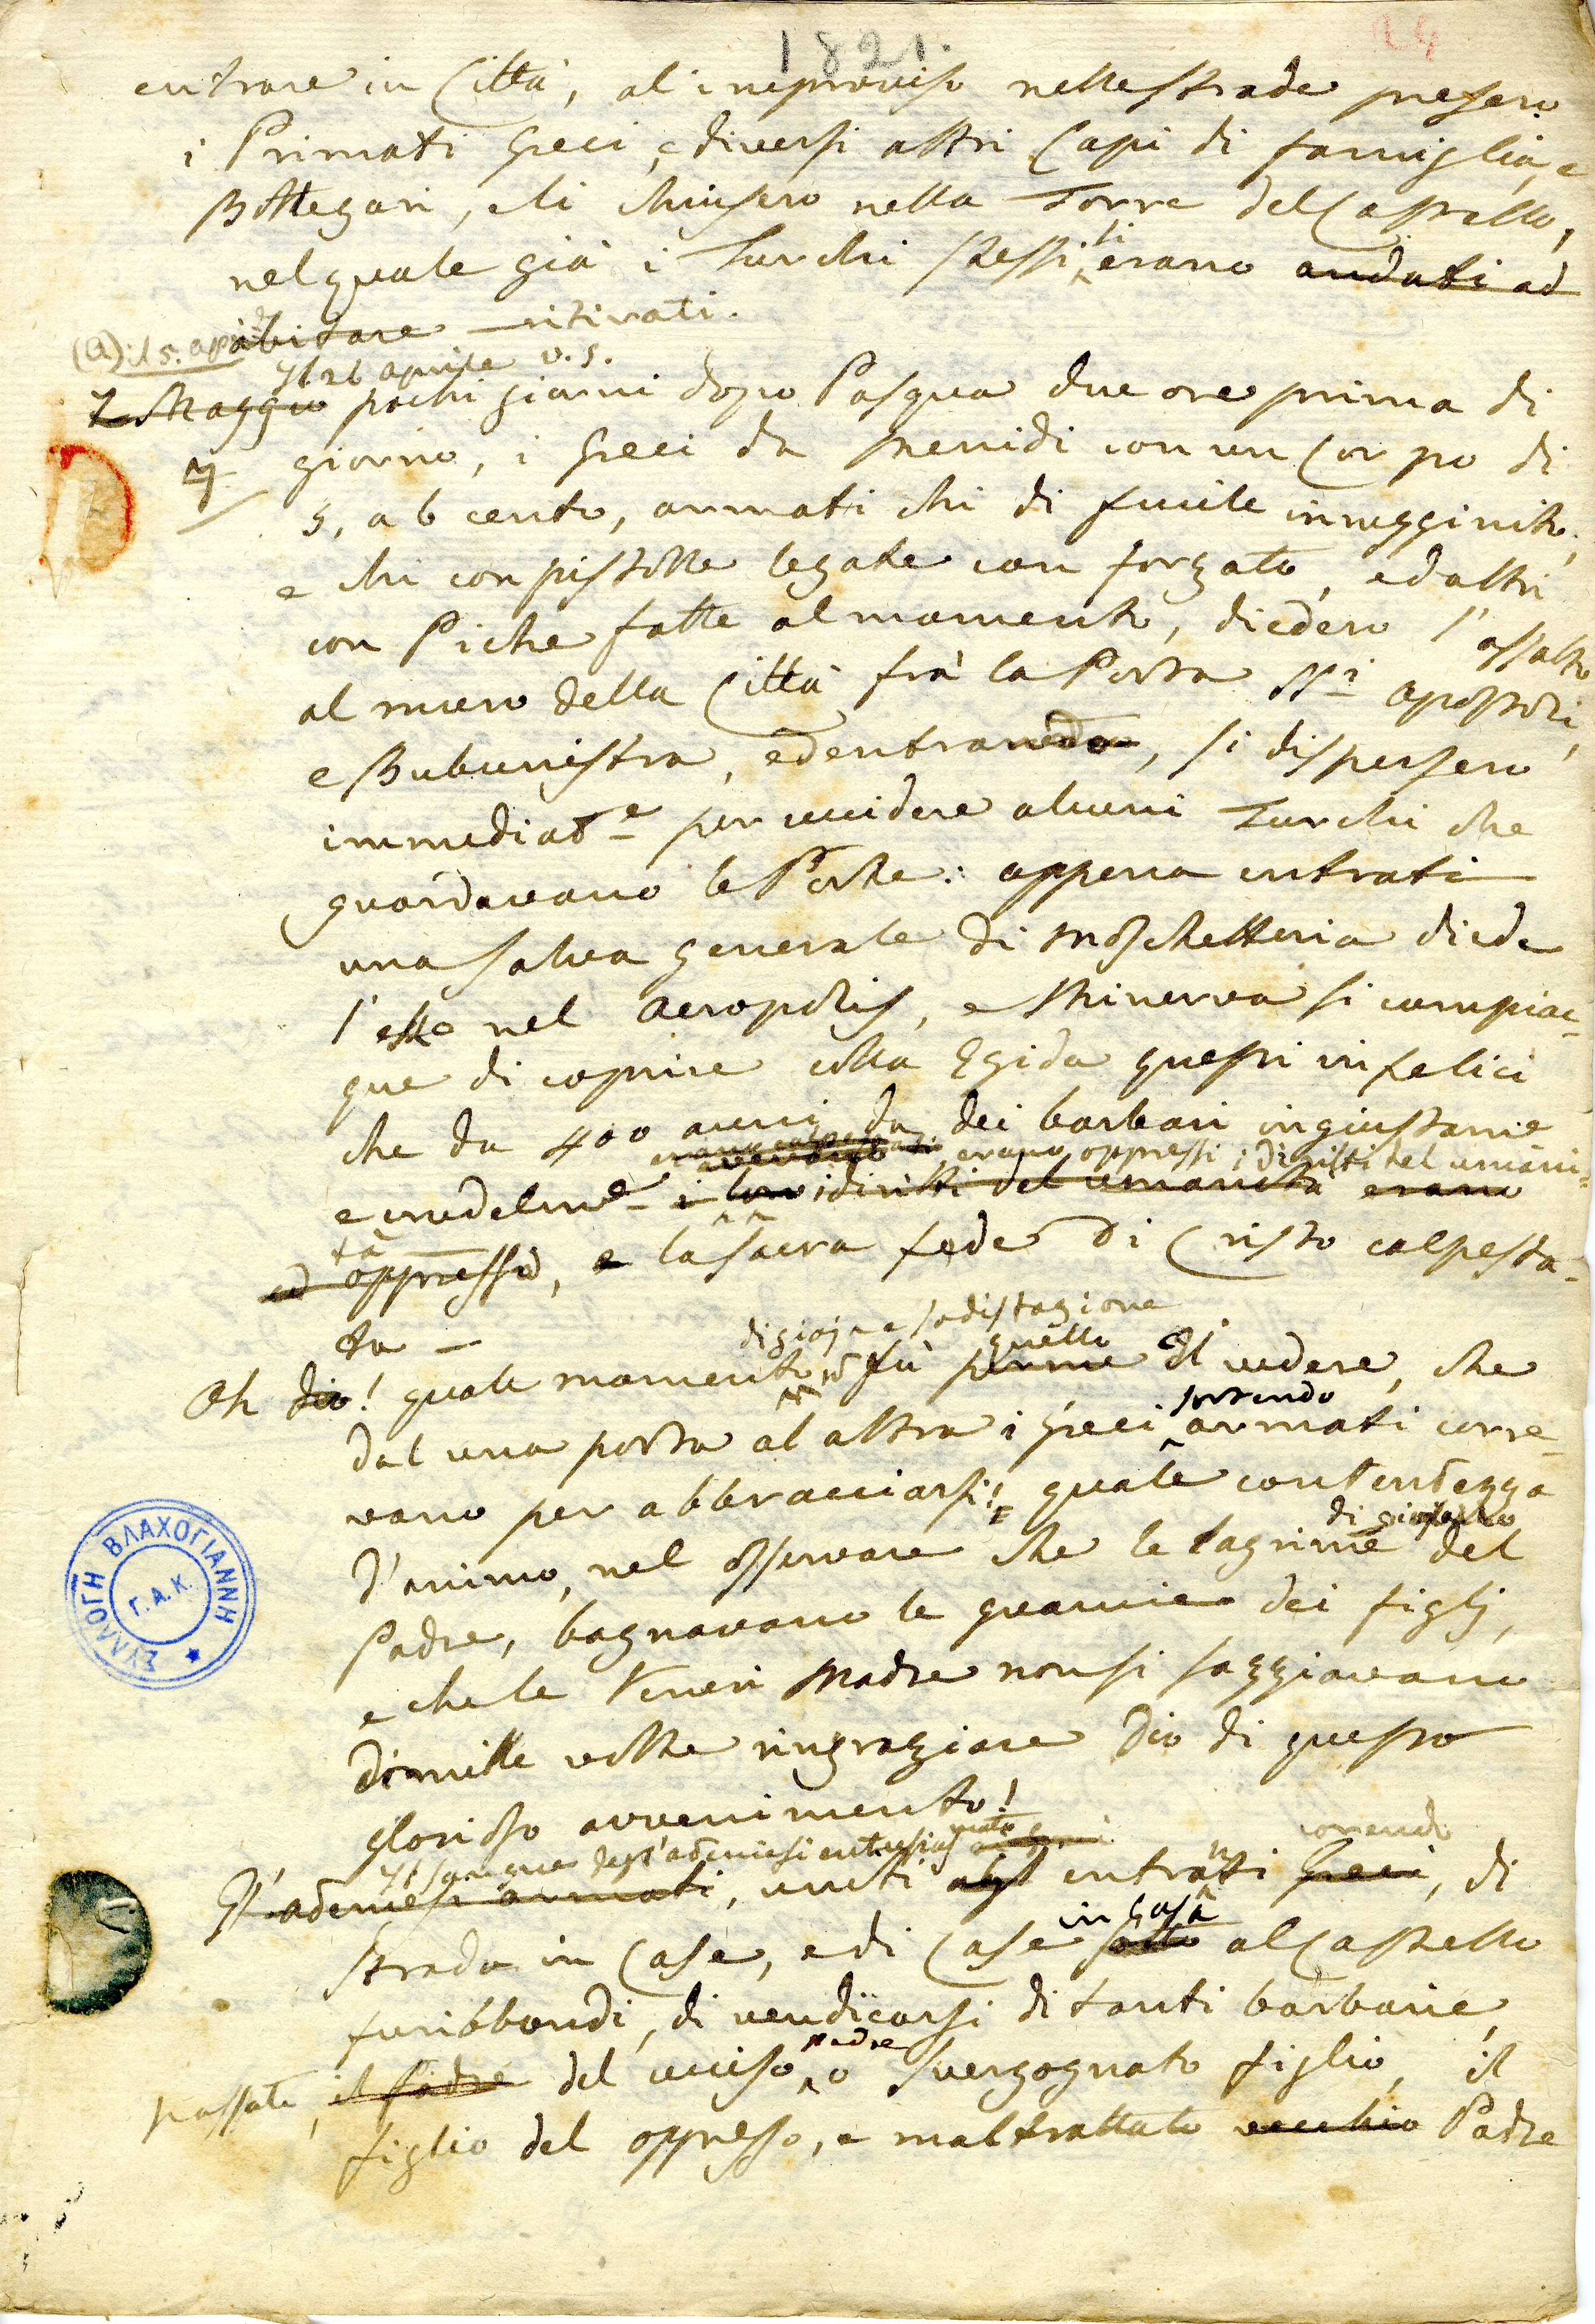 1821.
24
entrare in Città, al improviso nelle strade presero
i Primati Greci, e diversi altri Capi di famiglia, e
Bottegari, e li chiusero nella Torre del Castello,
nel quale già i Turchi stessi si erano andati ad
abitare ritirati.
(a) il 5. aprile
Il 26 aprile v. s.
7 Maggio pochi giorni dopo Pasqua due ore prima di
giorno, i Greci da Menidi con un Corpo di
5, a 6 cento, armati chi di fucile irrugginito,
e chi con pistolle legate con forzato, ed altri
con Piche fatte al momento, diedero l'assalto
al muro della Città frà la Porta SSi Apostoli,
e Bubunistra, ed entrando, si dispersero
immediate per uccidere alcuni Turchi che
guardavano le Porte: appena entrati
una salva generale di moschetteria diede
l'eco nel Acropolis, e Minerva si compiac-
que di coprire colla Egida questi infelici
che da 400 anni da dei barbari ingiustame
erano oppressi i diritti del umani-
e crudelme i loro i diritti del umanità erano
tà
ed oppressi, e la sacra fede di Cristo calpesta-
ta —
di gioja e sodisfazione
quello
Oh dio! quale momento fù per me il vedere, che
sortendo
dal una porta al altra i Greci armati corre-
vano per abbracciarsi! quale contentezza
di
d'animo, nel osservare che le lagrime del
Padre, bagnavano le guancie dei figlj,
e che le Teneri Madre non si sazziavano
di mille volte ringraziare Dio di questo
glorioso avvenimento!
Il sangue degl'ateniesi entusias
correndo
Gl'ateniesi armati, uniti agl entrati Greci, di
in Casa
strada in Case, e di Case sotto al Castello
furibbondi, di vendicarsi di tanti barbarie
Padre
passate, il Padre del ucciso, o svergognato figlio, il
figlio del oppresso, e maltrattato vecchio Padre
ΣΥΛΛΟΓΗ ΒΛΑΧΟΓΙΑΝΝΗ
Γ.Α.Κ.